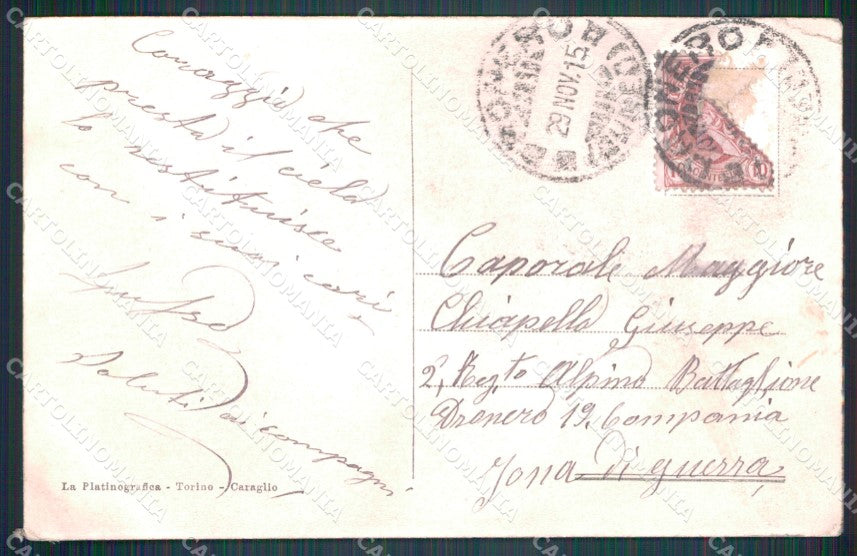 Coraggio che
presto il cielo
lo restituisce
con i suoi cari
Saluti dai compagni
La Platinografica - Torino - Caraglio
DRONERO (CUNEO)
29 NOV. 15
Caporale Maggiore
Chiapello Giuseppe
2, Regto Alpino Battaglione
Dronero 19. Compania
Zona di guerra,
CARTOLINOMANIA